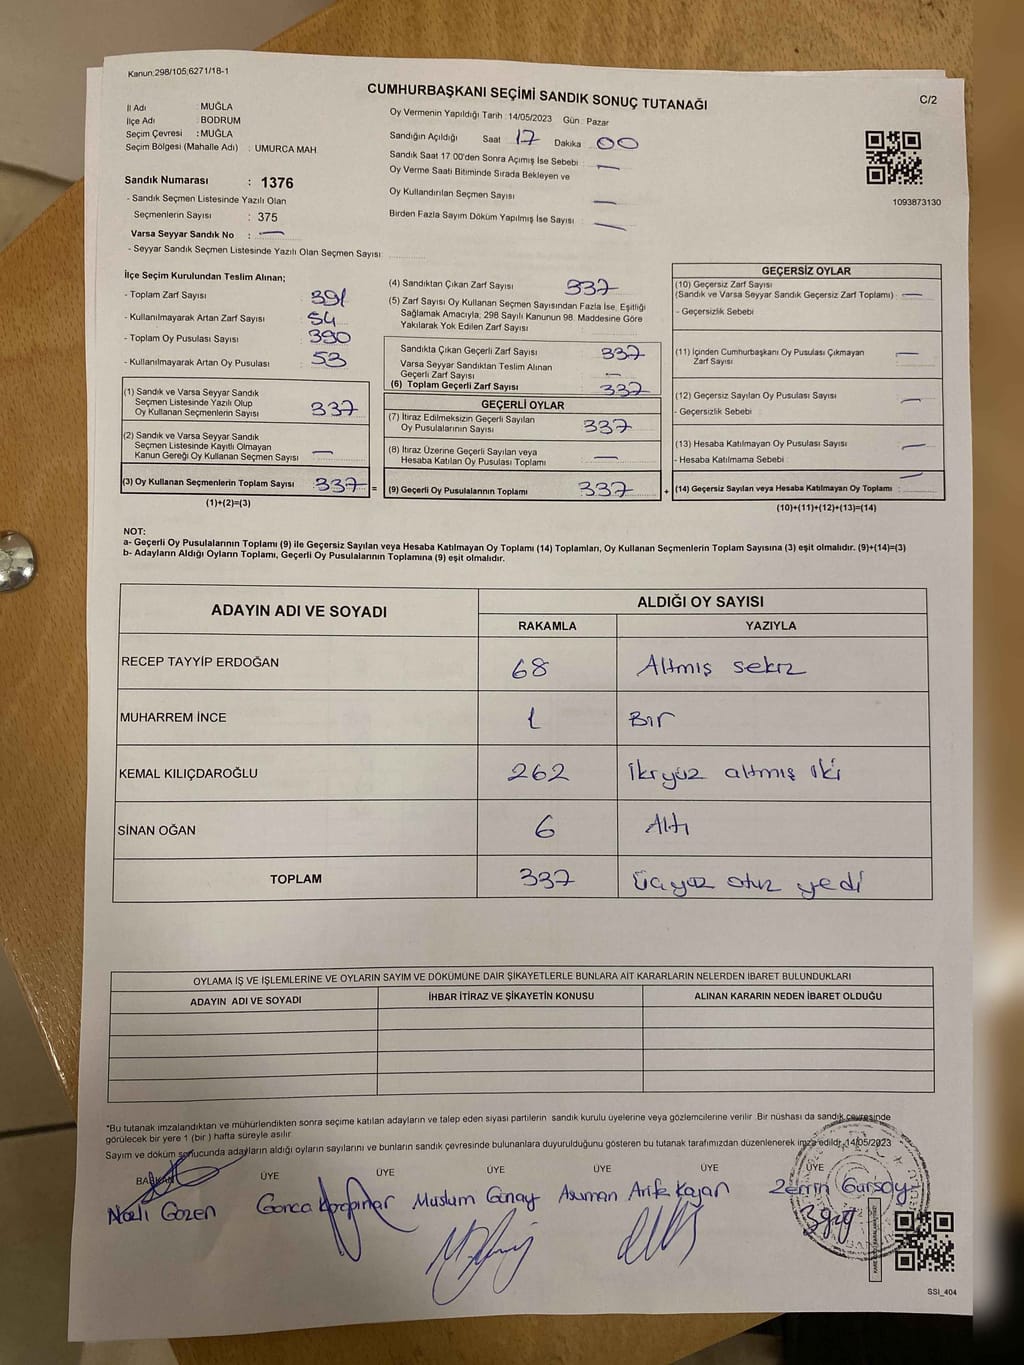 Kanun:298/105;6271/18-1
CUMHURBAŞKANI SEÇİMİ SANDIK SONUÇ TUTANAĞI
C/2
İl Adı : MUĞLA
İlçe Adı : BODRUM
Seçim Çevresi : MUĞLA
Seçim Bölgesi (Mahalle Adı) : UMURCA MAH
Sandık Numarası : 1376
- Sandık Seçmen Listesinde Yazılı Olan
Seçmenlerin Sayısı : 375
Varsa Seyyar Sandık No : —
- Seyyar Sandık Seçmen Listesinde Yazılı Olan Seçmen Sayısı
Oy Vermenin Yapıldığı Tarih : 14/05/2023 Gün : Pazar
Sandığın Açıldığı Saat 17 Dakika 00
Sandık Saat 17 00'den Sonra Açımış İse Sebebi : —
Oy Verme Saati Bitiminde Sırada Bekleyen ve
Oy Kullandırılan Seçmen Sayısı —
Birden Fazla Sayım Döküm Yapılmış İse Sayısı : —
1093873130
İlçe Seçim Kurulundan Teslim Alınan;
- Toplam Zarf Sayısı : 391
- Kullanılmayarak Artan Zarf Sayısı : 54
- Toplam Oy Pusulası Sayısı : 390
- Kullanılmayarak Artan Oy Pusulası : 53
(1) Sandık ve Varsa Seyyar Sandık
Seçmen Listesinde Yazılı Olup
Oy Kullanan Seçmenlerin Sayısı 337
(2) Sandık ve Varsa Seyyar Sandık
Seçmen Listesinde Kayıtlı Olmayan
Kanun Gereği Oy Kullanan Seçmen Sayısı —
(3) Oy Kullanan Seçmenlerin Toplam Sayısı 337 =
(1)+(2)=(3)
(4) Sandıktan Çıkan Zarf Sayısı 337
(5) Zarf Sayısı Oy Kullanan Seçmen Sayısından Fazla İse, Eşitliği
Sağlamak Amacıyla, 298 Sayılı Kanunun 98. Maddesine Göre
Yakılarak Yok Edilen Zarf Sayısı
Sandıkta Çıkan Geçerli Zarf Sayısı 337
Varsa Seyyar Sandıktan Teslim Alınan
Geçerli Zarf Sayısı —
(6) Toplam Geçerli Zarf Sayısı 337
GEÇERLİ OYLAR
(7) İtiraz Edilmeksizin Geçerli Sayılan
Oy Pusulalarının Sayısı 337
(8) İtiraz Üzerine Geçerli Sayılan veya
Hesaba Katılan Oy Pusulası Toplamı —
(9) Geçerli Oy Pusulalarının Toplamı 337 +
GEÇERSİZ OYLAR
(10) Geçersiz Zarf Sayısı
(Sandık ve Varsa Seyyar Sandık Geçersiz Zarf Toplamı) —
- Geçersizlik Sebebi
(11) İçinden Cumhurbaşkanı Oy Pusulası Çıkmayan
Zarf Sayısı —
(12) Geçersiz Sayılan Oy Pusulası Sayısı —
- Geçersizlik Sebebi
(13) Hesaba Katılmayan Oy Pusulası Sayısı —
- Hesaba Katılmama Sebebi
(14) Geçersiz Sayılan veya Hesaba Katılmayan Oy Toplamı —
(10)+(11)+(12)+(13)=(14)
NOT:
a- Geçerli Oy Pusulalarının Toplamı (9) ile Geçersiz Sayılan veya Hesaba Katılmayan Oy Toplamı (14) Toplamları, Oy Kullanan Seçmenlerin Toplam Sayısına (3) eşit olmalıdır. (9)+(14)=(3)
b- Adayların Aldığı Oyların Toplamı, Geçerli Oy Pusulalarının Toplamına (9) eşit olmalıdır.
ADAYIN ADI VE SOYADI
ALDIĞI OY SAYISI
RAKAMLA YAZIYLA
RECEP TAYYİP ERDOĞAN 68 Altmış sekiz
MUHARREM İNCE 1 Bir
KEMAL KILIÇDAROĞLU 262 ikiyüz altmış iki
SİNAN OĞAN 6 Altı
TOPLAM 337 üçyüz otuz yedi
OYLAMA İŞ VE İŞLEMLERİNE VE OYLARIN SAYIM VE DÖKÜMÜNE DAİR ŞİKAYETLERLE BUNLARA AİT KARARLARIN NELERDEN İBARET BULUNDUKLARI
ADAYIN ADI VE SOYADI İHBAR İTİRAZ VE ŞİKAYETİN KONUSU ALINAN KARARIN NEDEN İBARET OLDUĞU
*Bu tutanak imzalandıktan ve mühürlendikten sonra seçime katılan adayların ve talep eden siyasi partilerin sandık kurulu üyelerine veya gözlemcilerine verilir .Bir nüshası da sandık çevresinde
görülecek bir yere 1 (bir ) hafta süreyle asılır.
Sayım ve döküm sonucunda adayların aldığı oyların sayılarını ve bunların sandık çevresinde bulunanlara duyurulduğunu gösteren bu tutanak tarafımızdan düzenlenerek imza edildi. 14/05/2023
BAŞKAN ÜYE ÜYE ÜYE ÜYE ÜYE ÜYE
Nazlı Gözen Gonca Müslüm Günay Asuman Arife Kayan Zerrin Gürsoy
SSI_404